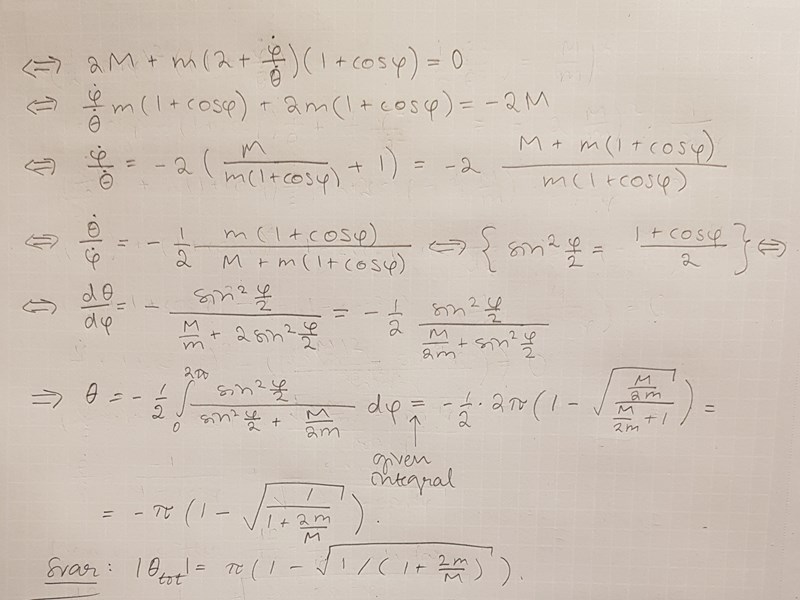 ⇔ 2M + m(2 + φ̇/θ̇)(1+cosφ) = 0
⇔ φ̇/θ̇ m(1+cosφ) + 2m(1+cosφ) = -2M
⇔ φ̇/θ̇ = -2 ( M/(m(1+cosφ)) + 1 ) = -2 (M + m(1+cosφ))/(m(1+cosφ))
⇔ θ̇/φ̇ = - 1/2 (m(1+cosφ))/(M + m(1+cosφ)) ⇔ { sin² φ/2 = (1+cosφ)/2 } ⇔
⇔ dθ/dφ = - (sin² φ/2)/(M/m + 2sin² φ/2) = - 1/2 (sin² φ/2)/(M/2m + sin² φ/2)
⇒ θ = - 1/2 ∫₀^2π (sin² φ/2)/(sin² φ/2 + M/2m) dφ = - 1/2 · 2π ( 1 - √((M/2m)/(M/2m + 1)) ) =
↑
given
integral
= -π ( 1 - √(1/(1 + 2m/M)) ).
Svar: |θtot| = π ( 1 - √(1/(1 + 2m/M)) ).